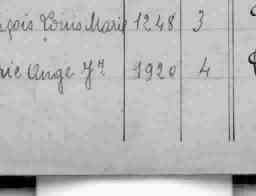 nçois Louis Marie 1248 3
rie Ange Jh 1920 4